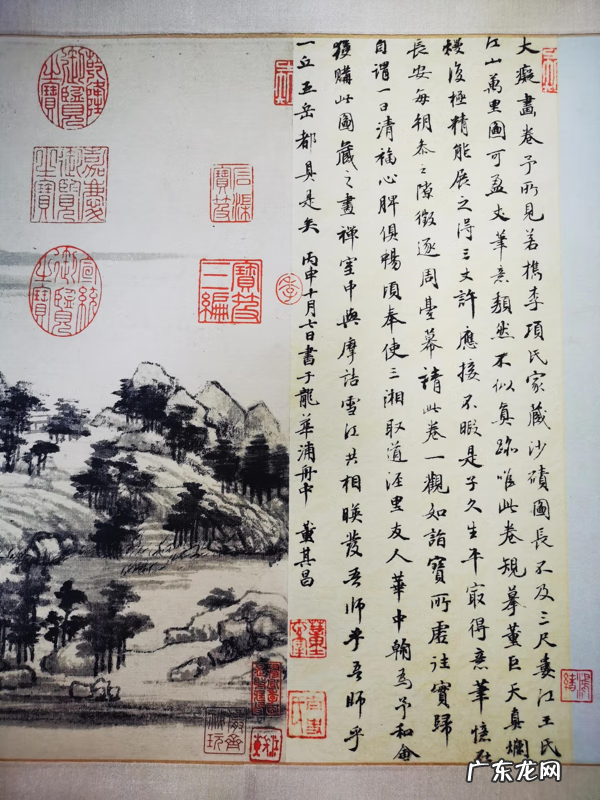 大癡畫卷予所見若檇李項氏家藏沙磧圖長不及三尺婁江王氏
江山萬里圖可盈丈筆意頹然不似真跡唯此卷規摹董巨天真爛
熳復極精能展之得三丈許應接不暇是子久生平冣得意筆憶在
長安每朝參之隙徵逐周臺幕請此卷一觀如詣寶所虛往實歸
自謂一日清福心脾俱暢頃奉使三湘取道涇里友人華中翰為予和會
獲購此圖藏之畫禪室中與摩詰雪江共相暎發吾師乎吾師乎
一丘五岳都具是矣 丙申十月七日書于龍華浦舟中 董其昌
乾隆御覽之寶
嘉慶御覽之寶
宣統御覽之寶
石渠寶笈
寶笈三編
广东龙网